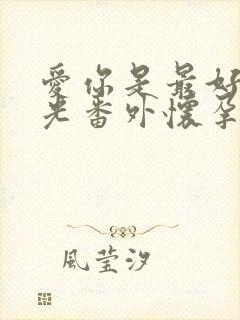 愛你是最好
光番外懷孕
風莹汐